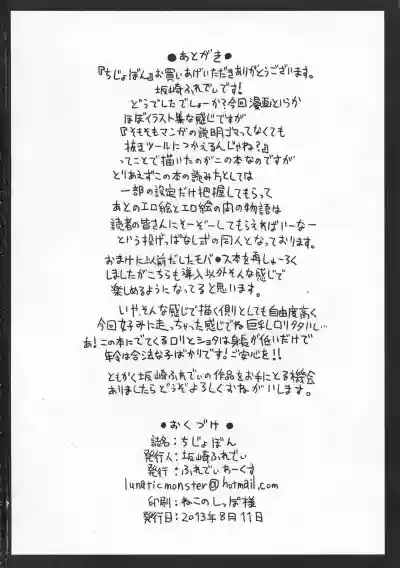 ●あとがき●
『ちじょぼん』お買いあげいただきありがとうございます。
坂崎ふれでぃです!
どうでしたでしょーか?今回漫画というか
ほぼイラスト集な感じですが
『そもそもマンガの説明ゴマってなくても
抜きツールにつかえるんじゃね?』
ってことで描いたのがこの本なのですが
とりあえずこの本の読み方としては
一部の設定だけ把握してもらって
あとのエロ絵とエロ絵の間の物語は
読者の皆さんにそーぞーしてもらえればいーなー
という投げっぱなし式の同人となっております。
おまけに以前だしたモバ・ス本を再しゅーろく
しましたがこちらも導入以外そんな感じで
楽しめるようになってると思います。
いや、そんな感じで描く側としても自由度高く
今回好みに走っちゃった感じでね巨乳ロリタノシ…
あ!この本にでてくるロリとショタは身長が低いだけで
年令は合法な子ばかりです!ご安心を!!
ともかく坂崎ふれでぃの作品をお手にとる機会
ありましたらどうぞよろしくおねがいします。
●おくづけ●
誌名:ちじょぼん
発行人:坂崎ふれでぃ
発行:ふれでぃわーくす
lunaticmonster@hotmail.com
印刷:ねこのしっぽ様
発行日:2013年8月11日